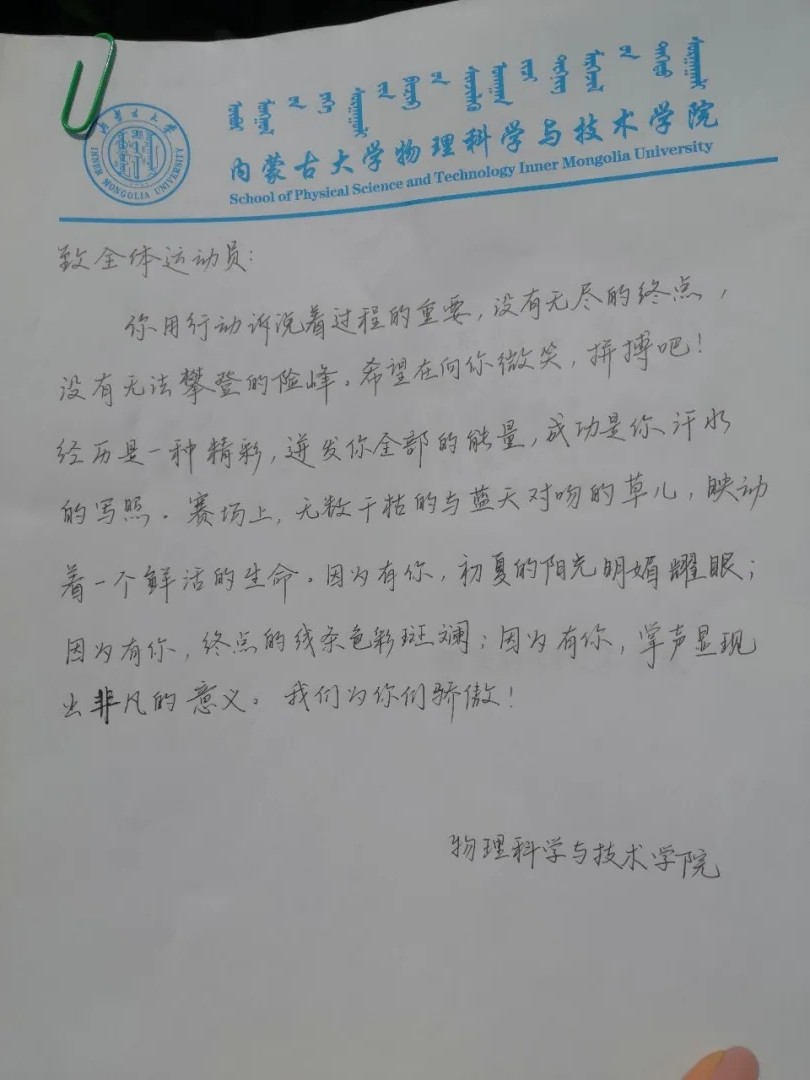 内蒙古大学
INNER MONGOLIA UNIVERSITY
内蒙古大学物理科学与技术学院
School of Physical Science and Technology Inner Mongolia University
致全体运动员:
你用行动诉说着过程的重要,没有无尽的终点,
没有无法攀登的险峰。希望在向你微笑,拼搏吧!
经历是一种精彩,迸发你全部的能量,成功是你汗水
的写照。赛场上,无数干枯的与蓝天对吻的草儿,映动
着一个鲜活的生命。因为有你,初夏的阳光明媚耀眼;
因为有你,终点的线条色彩斑斓;因为有你,掌声显现
出非凡的意义。我们为你们骄傲!
物理科学与技术学院